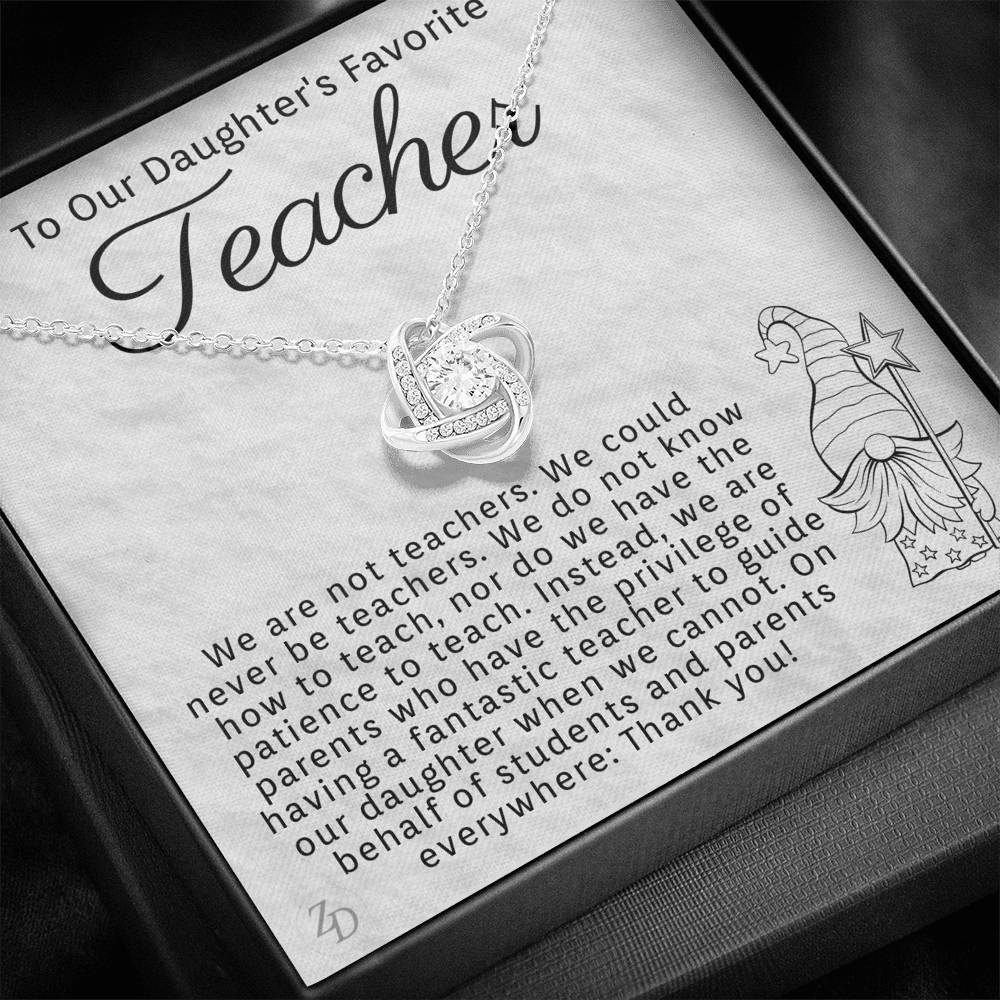 To Our Daughter's Favorite
Teacher
We are not teachers. We could
never be teachers. We do not know
how to teach, nor do we have the
patience to teach. Instead, we are
parents who have the privilege of
having a fantastic teacher to guide
our daughter when we cannot. On
behalf of students and parents
everywhere: Thank you!
ZD